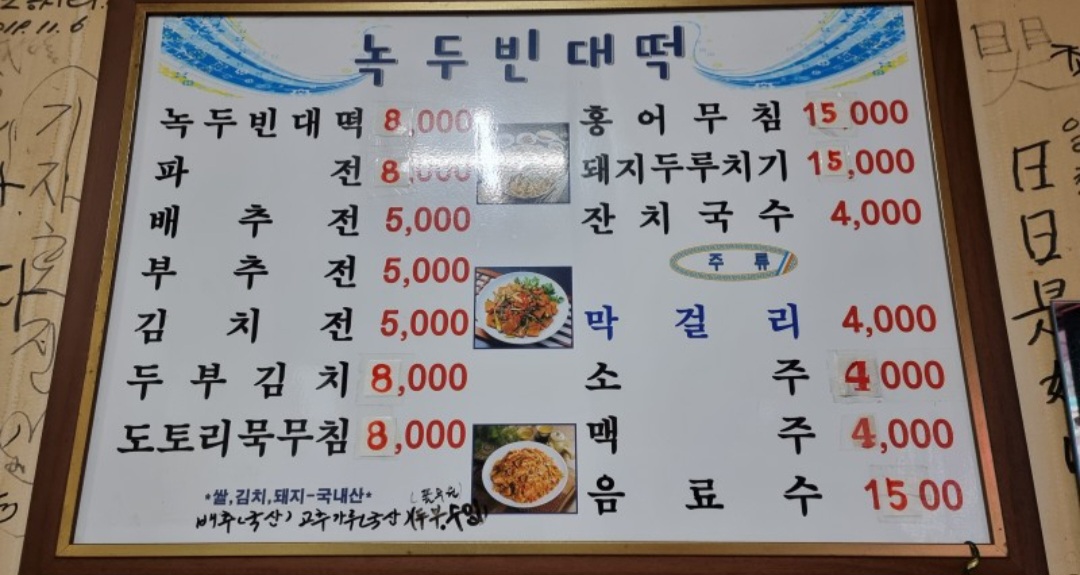 녹두빈대떡
녹두빈대떡 8,000
파전 8,000
배추전 5,000
부추전 5,000
김치전 5,000
두부김치 8,000
도토리묵무침 8,000
*쌀,김치,돼지-국내산*
배추(국산) 고추가루(국산)
홍어무침 15,000
돼지두루치기 15,000
잔치국수 4,000
주류
막걸리 4,000
소주 4000
맥주 4,000
음료수 1500
2019.11.6
日
是